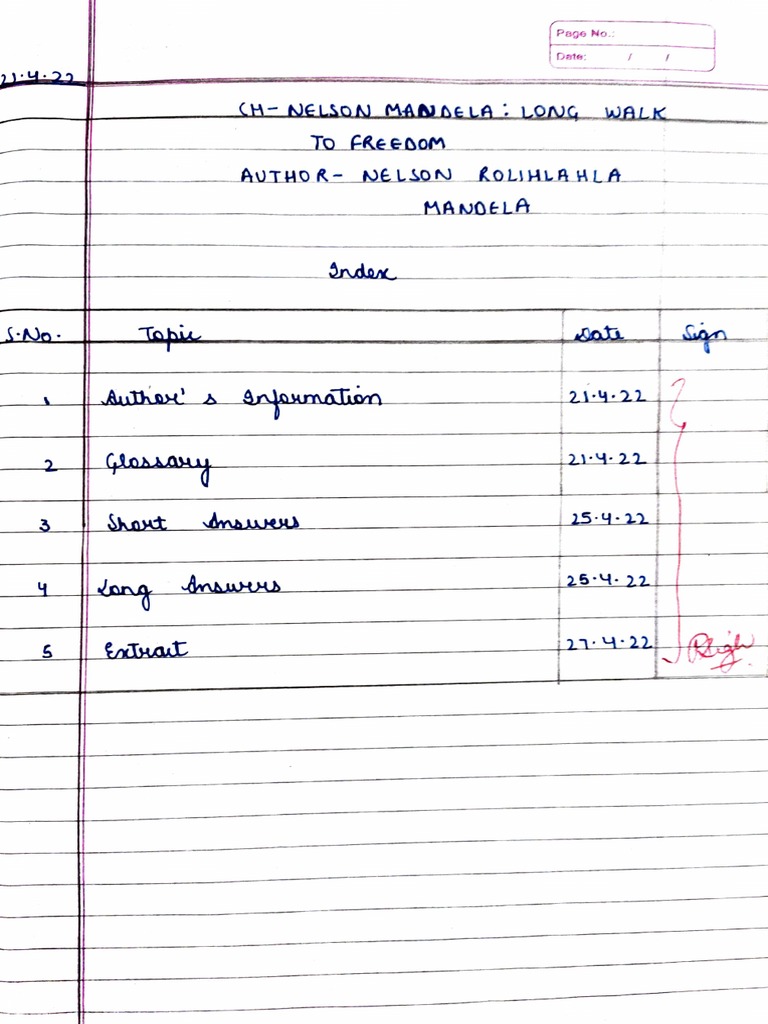 Page No.:
Date: / /
21.4.22
CH- NELSON MANDELA: LONG WALK
TO FREEDOM
AUTHOR- NELSON ROLIHLAHLA
MANDELA
Index
S.No. Topic Date Sign
1 Author's Information 21.4.22
2 Glossary 21.4.22
3 Short Answers 25.4.22
4 Long Answers 25.4.22
5 Extract 27.4.22